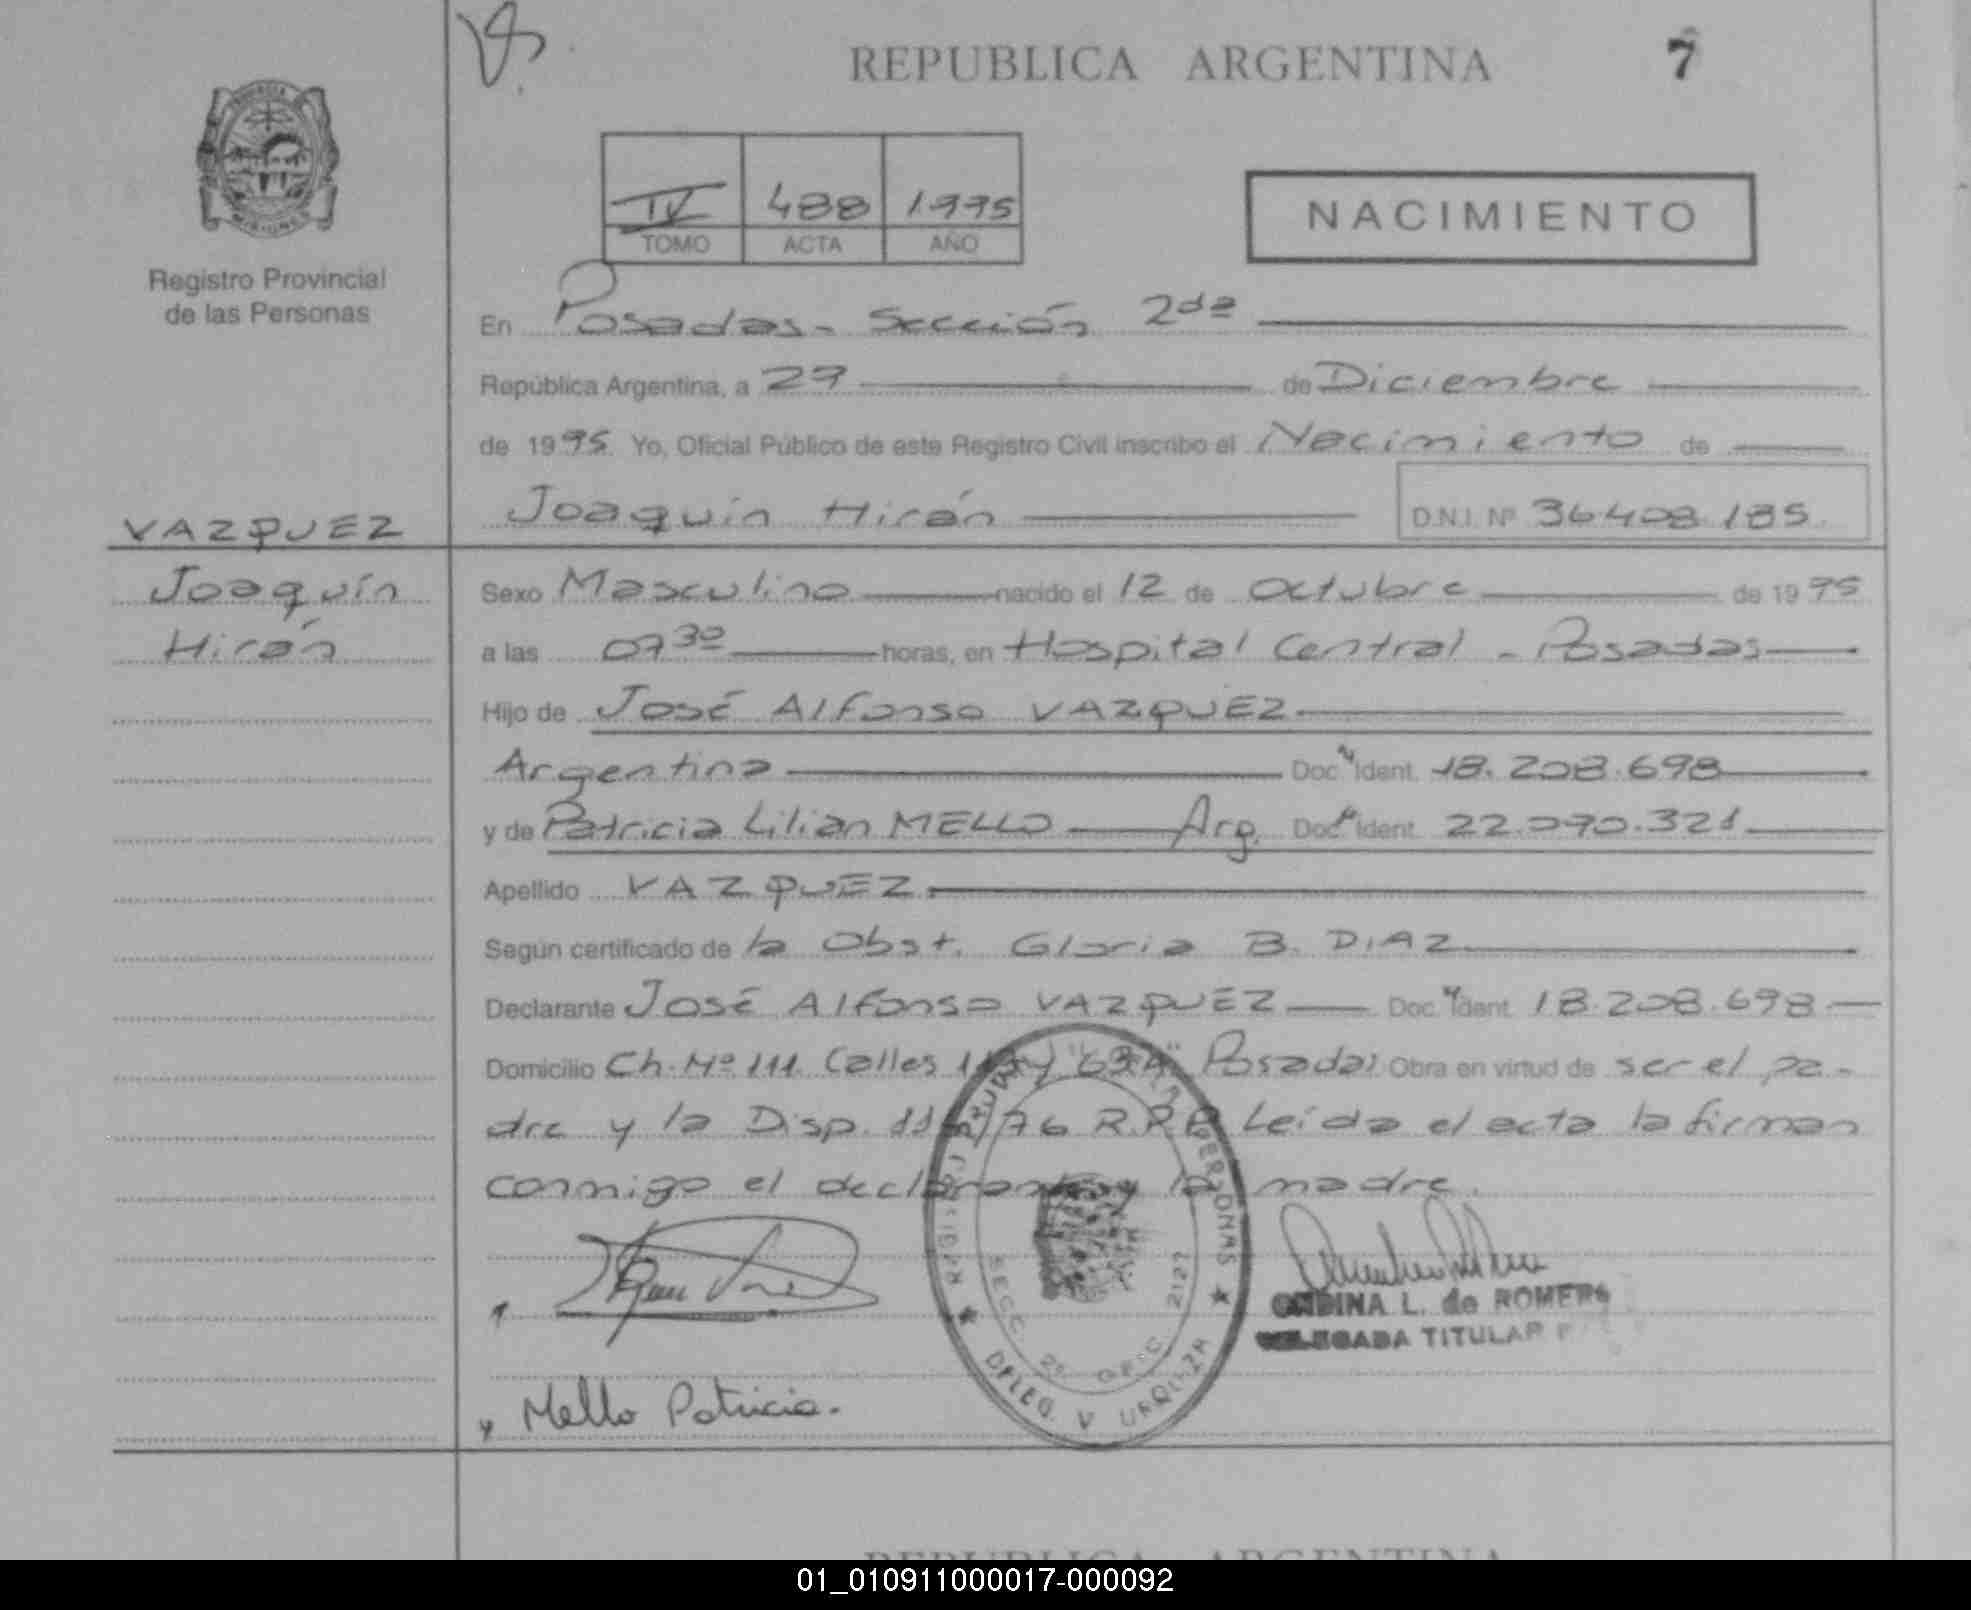 REPUBLICA ARGENTINA 7
IV 488 1995
TOMO ACTA AÑO
NACIMIENTO
Registro Provincial
de las Personas
En Posadas - Sección 2da
República Argentina, a 29 de Diciembre
de 1995 Yo, Oficial Público de este Registro Civil inscribo el Nacimiento de
Joaquín Hirán D.N.I. Nº 36408.185.
VAZQUEZ
Joaquín
Hirán
Sexo Masculino nacido el 12 de Octubre de 1995
a las 07 30 horas, en Hospital Central - Posadas
Hijo de José Alfonso VAZQUEZ
Argentina Doc. Ident. 18.208.698
y de Patricia Lilian MELLO Arg. Doc. Ident. 22.090.321
Apellido VAZQUEZ
Según certificado de la Obst. Gloria B. DIAZ
Declarante José Alfonso VAZQUEZ Doc. Ident. 18.208.698
Domicilio Ch. Nº 111 Calles y Posadas Obra en virtud de ser el pa-
dre y la Disp. /76 R.P.P. Leída el acta la firman
conmigo el declarante y la madre.
ONDINA L. de ROMERO
DELEGADA TITULAR
Mello Patricia.
DELEG. V URQUIZA
REPUBLICA ARGENTINA
01_010911000017-000092